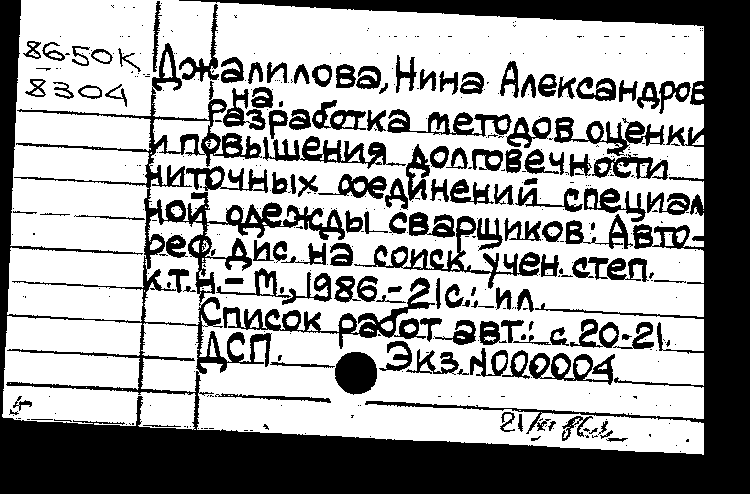 86-50К
8304
Джалилова, Нина Александров
на.
Разработка методов оценки
и повышения долговечности
ниточных соединений специал
ной одежды сварщиков: Авто-
реф. дис. на соиск. учен. степ.
к.т.н. - М., 1986. - 21с.: ил.
Список работ авт.: с. 20-21.
ДСП. Экз. N000004.